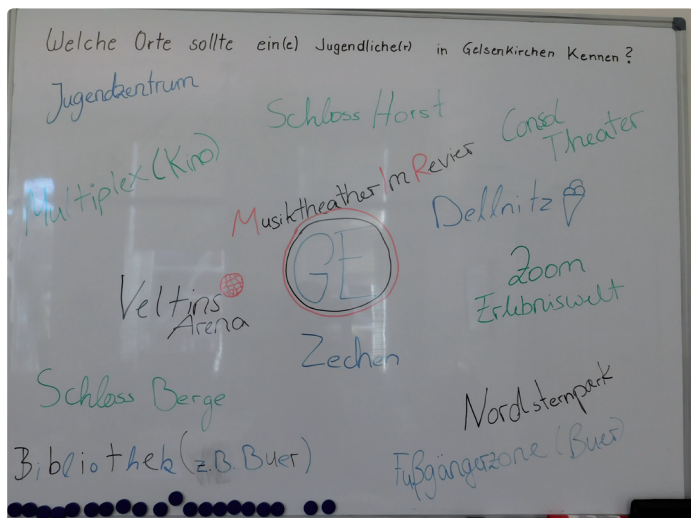 Welche Orte sollte ein(e) Jugendliche(r) in Gelsenkirchen Kennen?
Jugendzentrum
Schloss Horst
Consol
Theater
Multiplex (Kino)
Musiktheather Im Revier
Dellnitz
GE
Zoom
Erlebniswelt
Veltins
Arena
Zechen
Schloss Berge
Nordsternpark
Bibliothek (z.B. Buer)
Fußgängerzone (Buer)